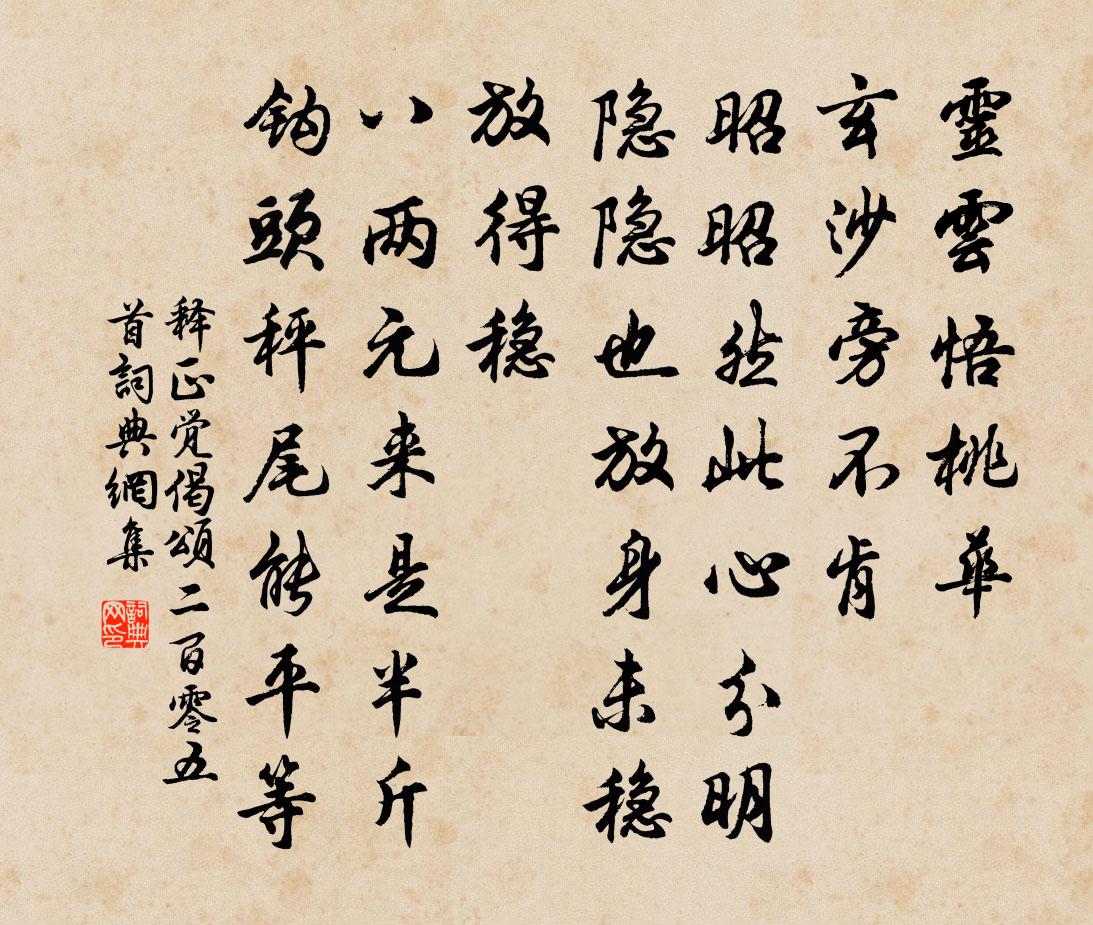 靈雲悟桃華
玄沙旁不肯
昭昭然此心分明
隐隐也放身未穏
放得穏
八两元来是半斤
鈎頭秤尾能平等
释正覚偈頌二百零五
首詞典網集
詞典
网印